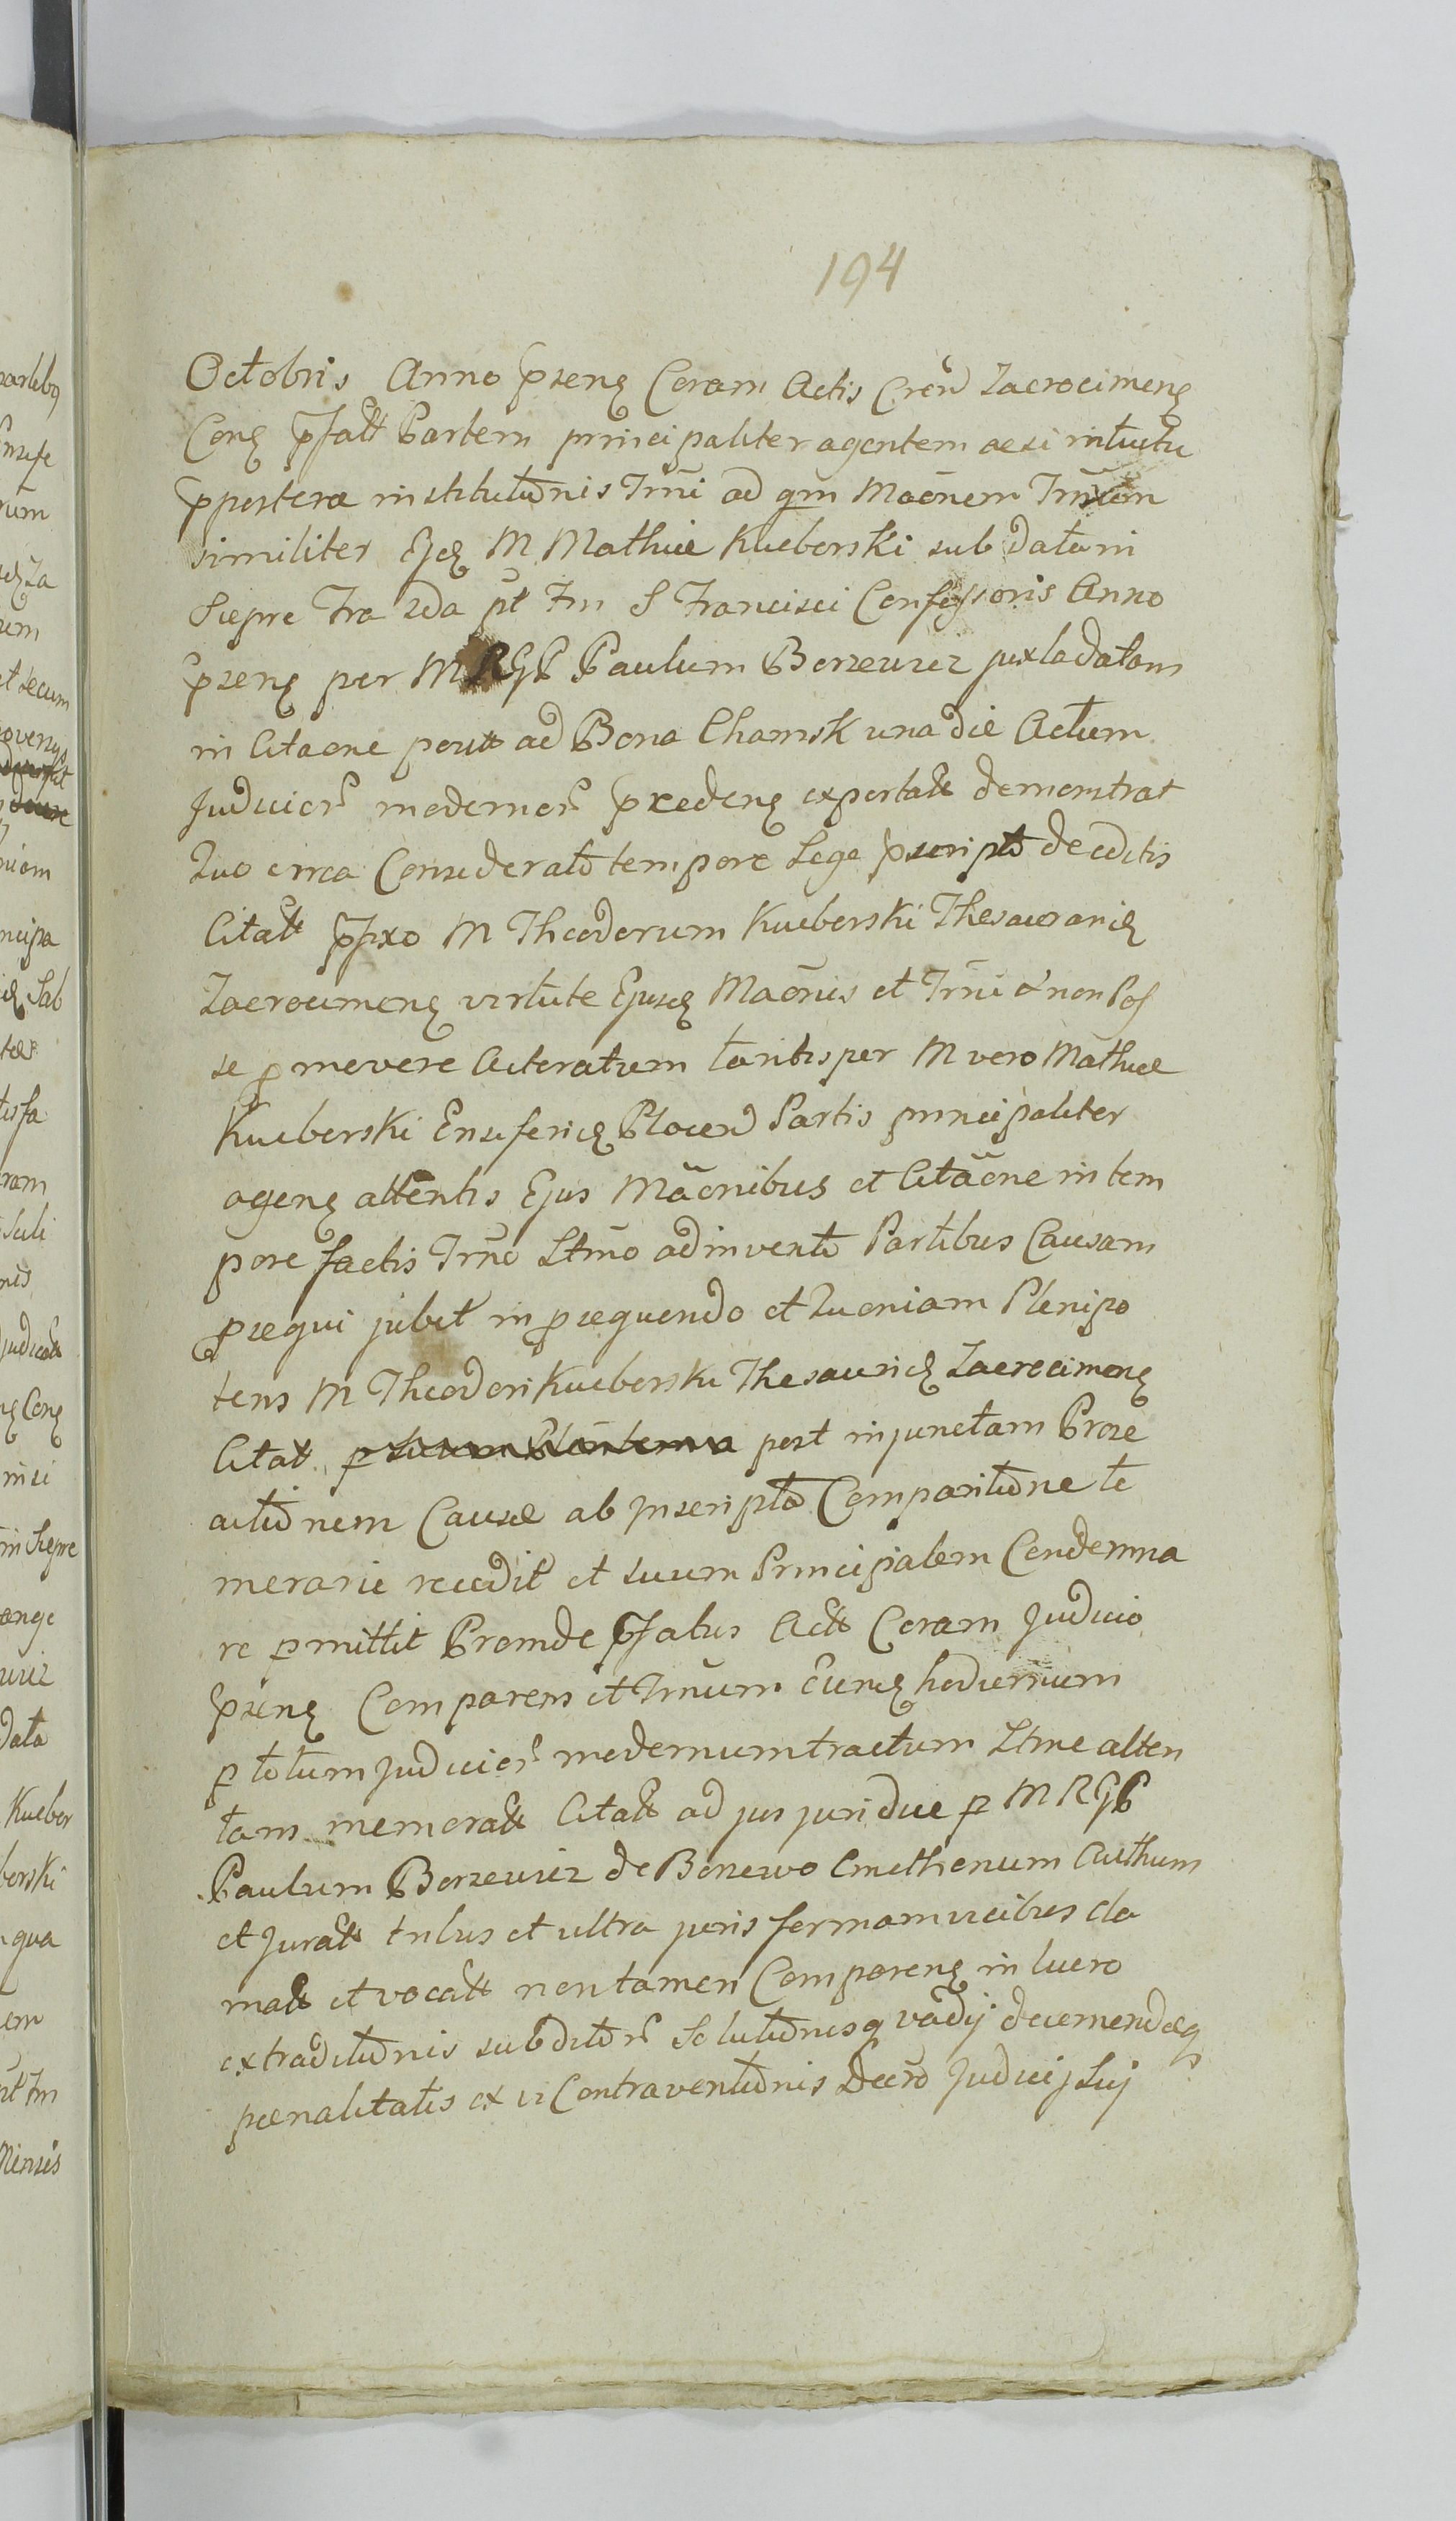 194
Octobris Anno psenꝫ Coram Actis Cren Zacrocimenꝫ
Conꝫ pfatt Partem principaliter agentem acsi intuitu
ppostera institutōnis Trni ad qm Maōnem Trnum
similiter Ejꝫ M Mathiæ Kucborski sub datam
Siepre fra 2da pt fm S Francisci Confessoris Anno
psenꝫ per M RGP Paulum Borzewicz juxta datam
in Citaone positt ad Bona Chamsk una die Actum
Judicior modernor præcedenꝫ exportatt demonstrat
Quo circa Considerato tempore Lege pscripto de editis
Citatt pfixo M Theodorum Kucborski Thesaurariꝫ
Zacrocimenꝫ virtute Ejusꝫ Maōnis et Trni & non Pos
se pmovere Actoratum tantisper M vero Mathiæ
Kucborski Ensiferiꝫ Plocen Partis principaliter
agenꝫ attentis Ejus Maōnibus et Citaōne in tem
pore factis Trno Ltmo adinvento Partibus Causam
psequi jubet in psequendo et Quoniam Plenipo
tens M Theodori Kucborski Thesauriꝫ Zacrocimenꝫ
Citat p suum post injunctam Proze
cutiōnem Causæ ab Inscripto Comparitiōne te
merarie recedit et suum Principalem Condemna
re pmittit Proinde pfatus Actt Coram Judicio
psenꝫ Comparens et Trnum Eunꝫ hodiernum
p totum Judicior modernum tractum Ltme atten
tans memoratt Citatt ad jus juridice p M RGP
Paulum Borzewicz de Borzewo Cmethonum Authum
et Juratt tribus et ultra juris forman vicibus cla
matt et vocatt non tamen Comparenꝫ in lucro
extraditiōnis subditor Solutiōnisq vadij decernendæq
pœnalitatis ex vi Contraventiōnis Decro Judicij Sui